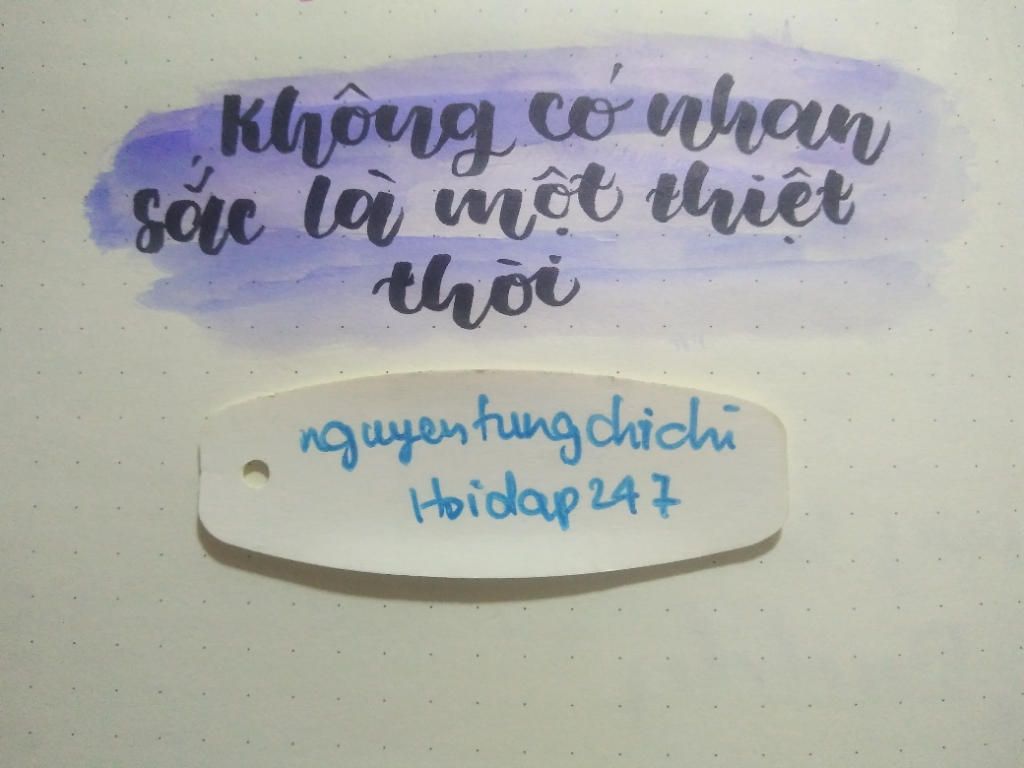 Không có nhan
sắc là một thiệt
thòi
nguyentungchichi
Hoidap247